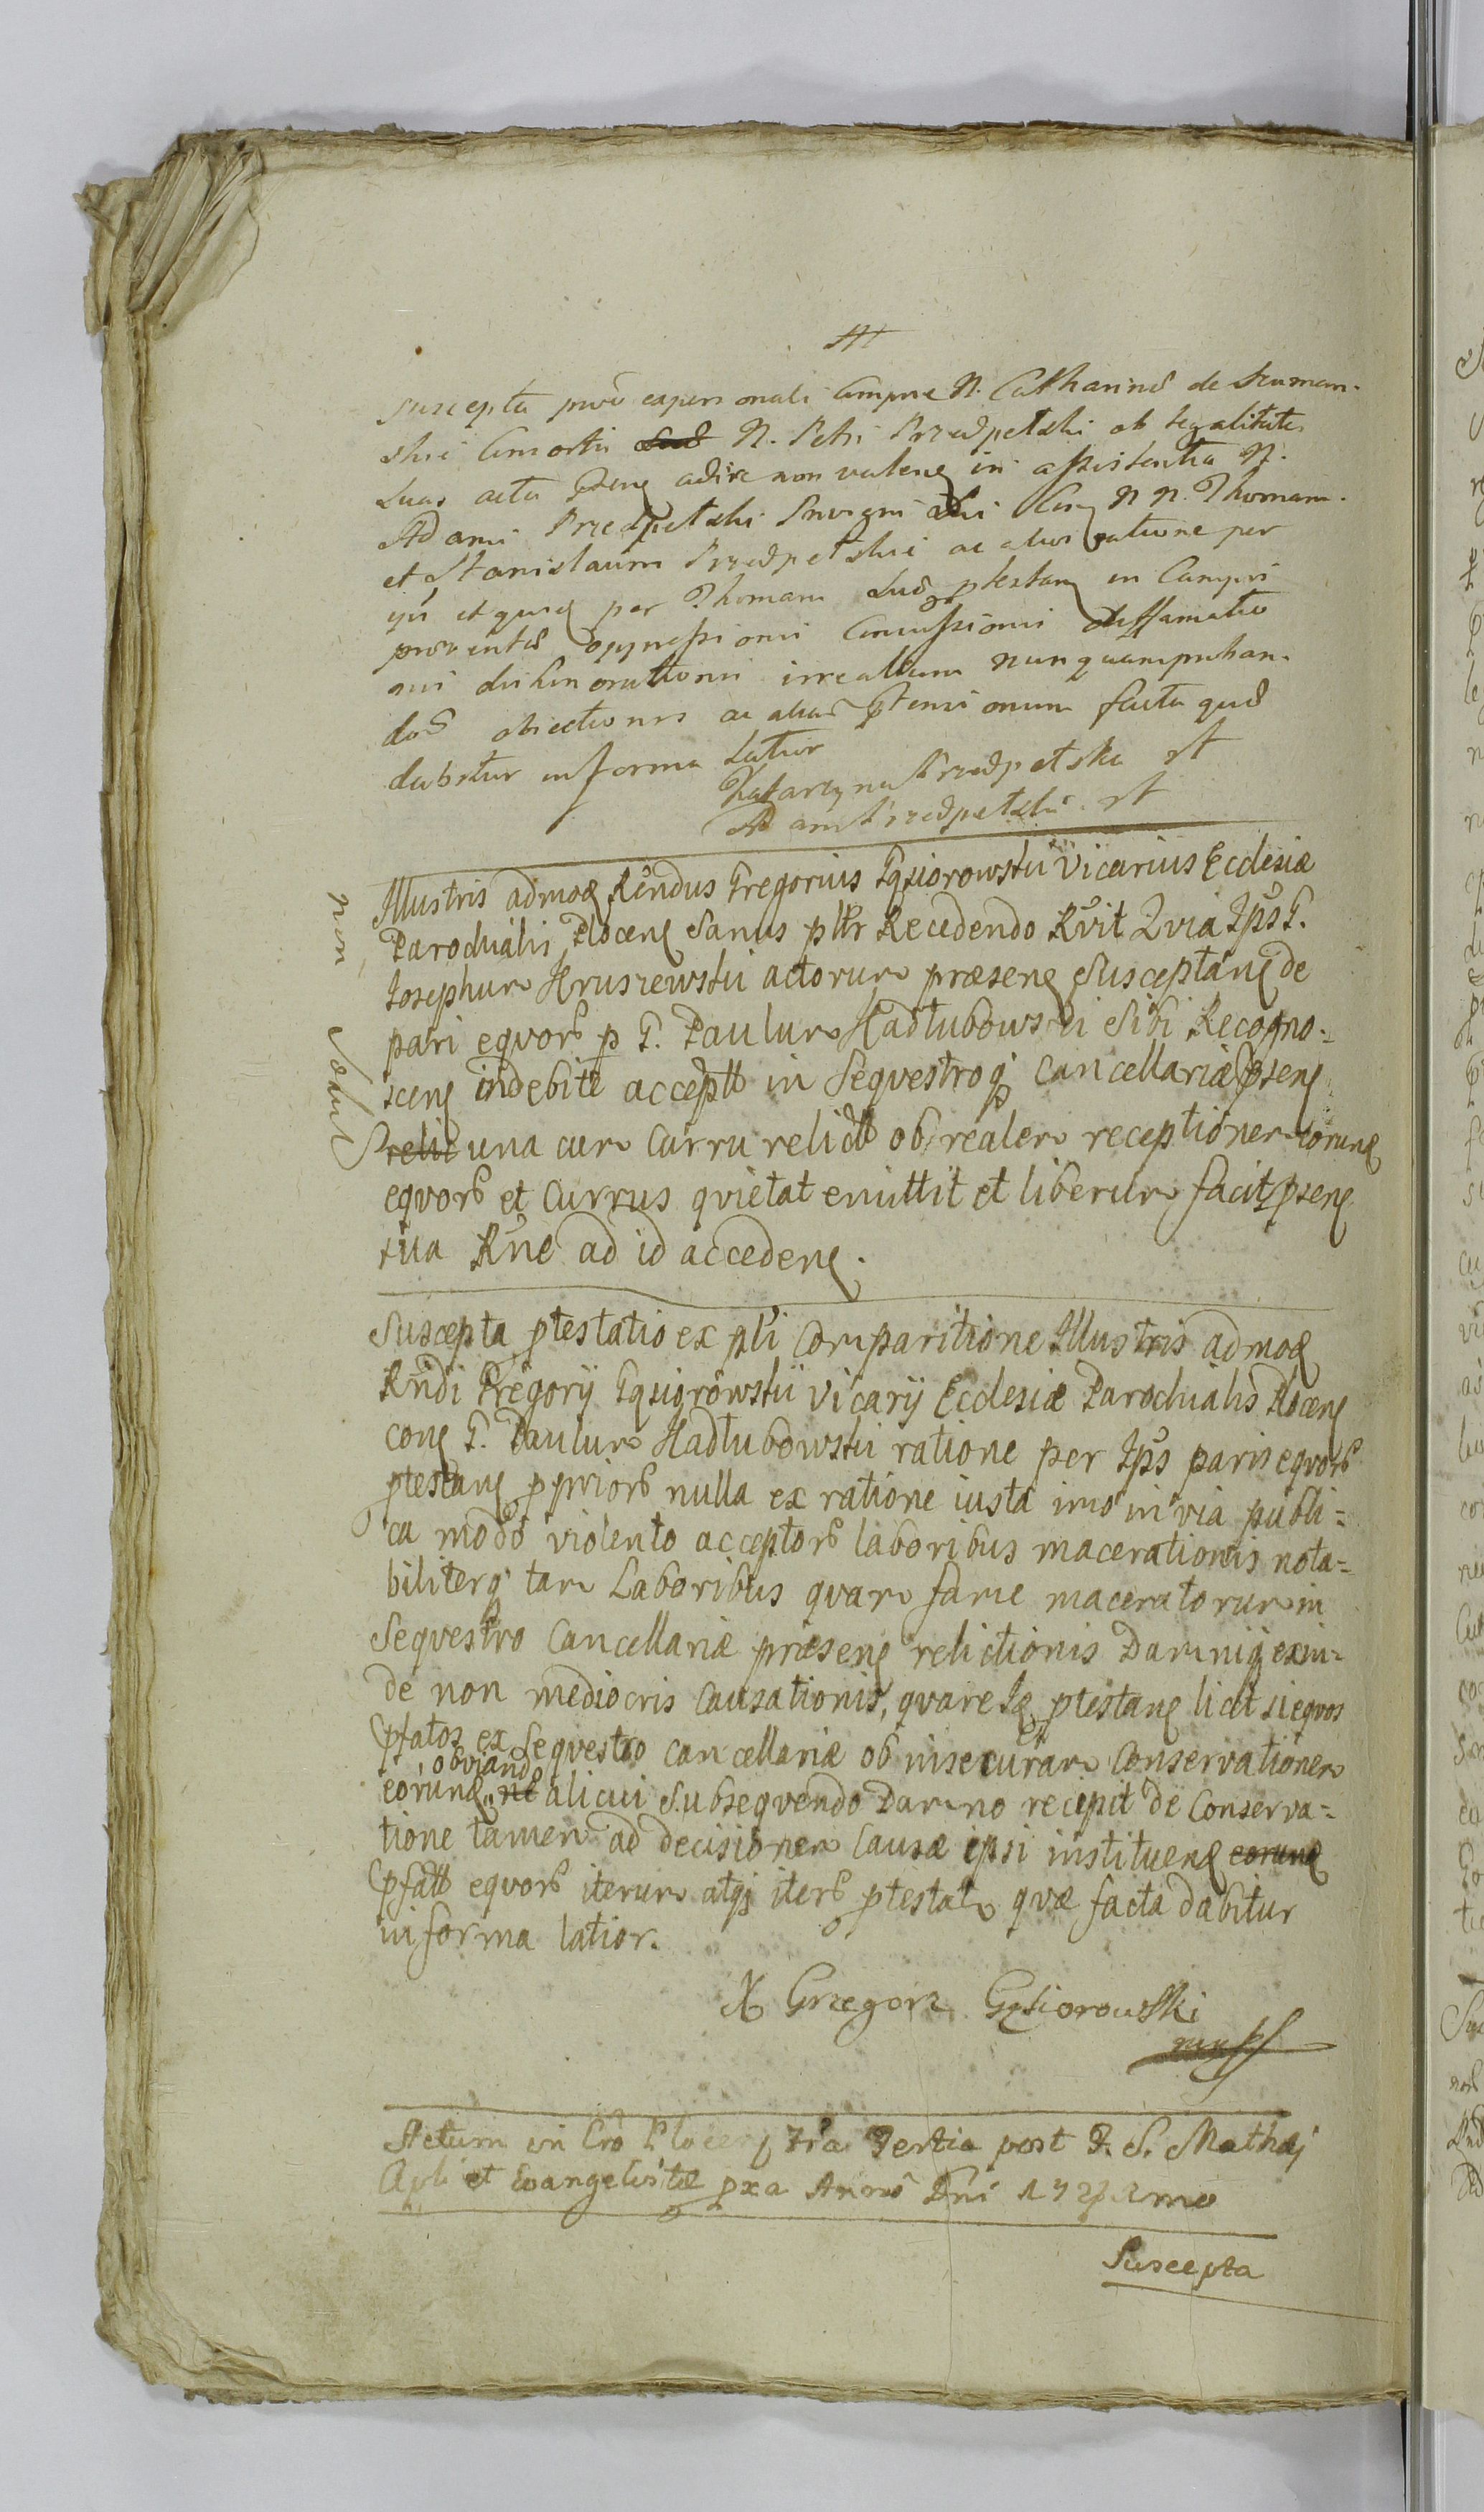 Suscepta ex personali Compne N. Catharinæ de Szuman-
skie Consortis N. Petri Przedpełski ob legalitates
Suas acta adire non valen in assistentia N.
Adami Przedpełski Con N N. Thomam
et Stanislaum Przedpełskie ac alios ratione per
et per Thomam ptestan in Campis
oppressionis Concussionis diffamatio
nis dishonorationis irrealium nunquam proban-
das obiectionis ac alias ptensionum facta quæ
dabitur in forma Latior
Katarzyna Przedpełska
Adam Przedpełski
Illustris admog Rndus Gregorius Gąsiorowski Vicarius Ecclesiæ
Parochialis Plocen Sanus pltr Recedendo Rvit Qvia Ips G.
Josephum Hruszewski actorum præsen Susceptan de
pari eqvorb p G. Paulum Hadłubowski Sibi Recogno-
scen indebite accept in Seqvestroq Cancellariæ psen
relic una cum Curru relict ob realem receptionem eorund
eqvorb et Currus qvietat emittit et liberum facit psen
sua Rne ad id acceden.
non solut
Suscepta ptestatio ex pli Comparitione Illustris admog
Rndi Gregorij Gąsiorowski Vicarij Ecclesiæ Parochialis Plocen
con G. Paulum Hadłubowski ratione per Ips paris eqvorb
ptestan ppriorb nulla ex ratione iusta imo in via publi-
ca modo violento acceptorb laboribus macerationis nota-
biliterq tam Laboribus qvam fame maceratorum in
Seqvestro Cancellariæ præsen relictionis Damniq exin-
de non mediocris Causationis, qvare Id ptestans licet si eqvos
pfatos ex Seqvestro Cancellariæ ob insecuram Conservationem
eorund obviando ne alicui Subseqvendo Damno recipit de Conserva-
tione tamen ad decisionem Causæ ipsi instituen eorund
pfatt eqvorb iterum atq iterb ptestat qvæ facta dabitur
in forma latior.
X Grzegorz Gąsiorowski
mpp
Actum in Cro Plocen Fra Tertia post F. S. Mathæj
Apli et Evangelistæ pxa Anno Dni
Suscepta